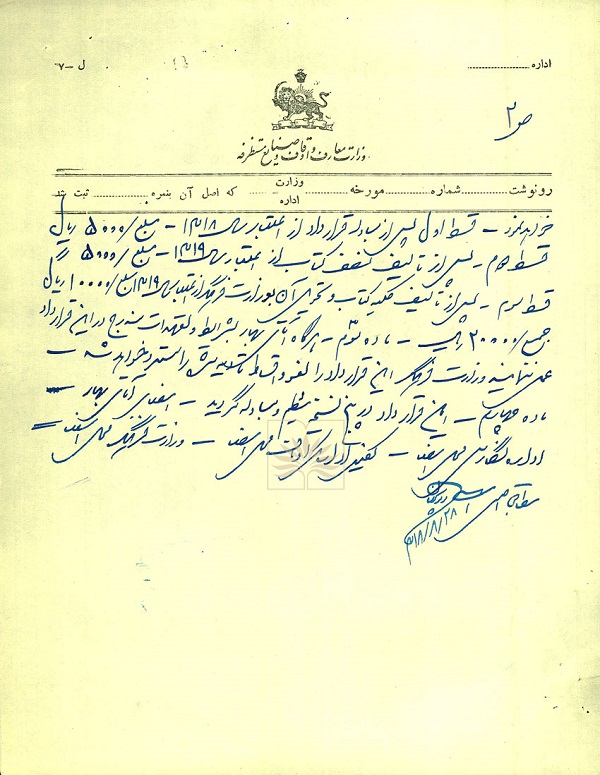 اداره
ل -۷
ص ۲
وزارت معارف و اوقاف و صنایع مستظرفه
رونوشت شماره مورخه وزارت اداره که اصل آن بنمره ثبت شد
خواهد نمود - قسط اول پس از مبادله قرارداد از اعتبار سال ۱۳۱۸ - مبلغ /۵۰۰۰ ریال
قسط دوم - پس از تألیف نصف کتاب از اعتبار سال ۱۳۱۹ - مبلغ /۵۰۰۰ ریال
قسط سوم - پس از تألیف کلیه کتاب و تحویل آن بوزارت فرهنگ از اعتبار سال ۱۳۱۹ مبلغ /۱۰۰۰۰ ریال
جمع /۲۰۰۰۰ ریال - ماده سوم - هرگاه آقای بهار بشرایط و تعهدات مندرج در این قرارداد
عمل ننمایند وزارت فرهنگ این قرارداد را لغو و اقساط تأدیه شده را مسترد خواهد داشت -
ماده چهارم - این قرارداد در پنج نسخه تنظیم و مبادله گردید - امضای آقای بهار -
اداره نگارش محل امضاء - کفیل اداره کل اوقاف محل امضاء - وزارت فرهنگ محل امضاء =
سواد مطابق اصل است
۱۸/۸/۲۸